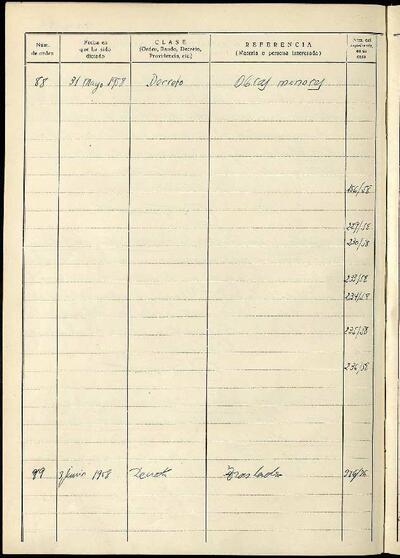 Núm. de orden
Fecha en que ha sido dictado
CLASE (Orden, Bando, Decreto, Providencia, etc.)
REFERENCIA (Materia o persona interesada)
Núm. del expediente, en su caso
88 31 Mayo 1958 Decreto Obras menores
229/58
230/58
233/58
234/58
235/58
236/58
3 Junio 1958